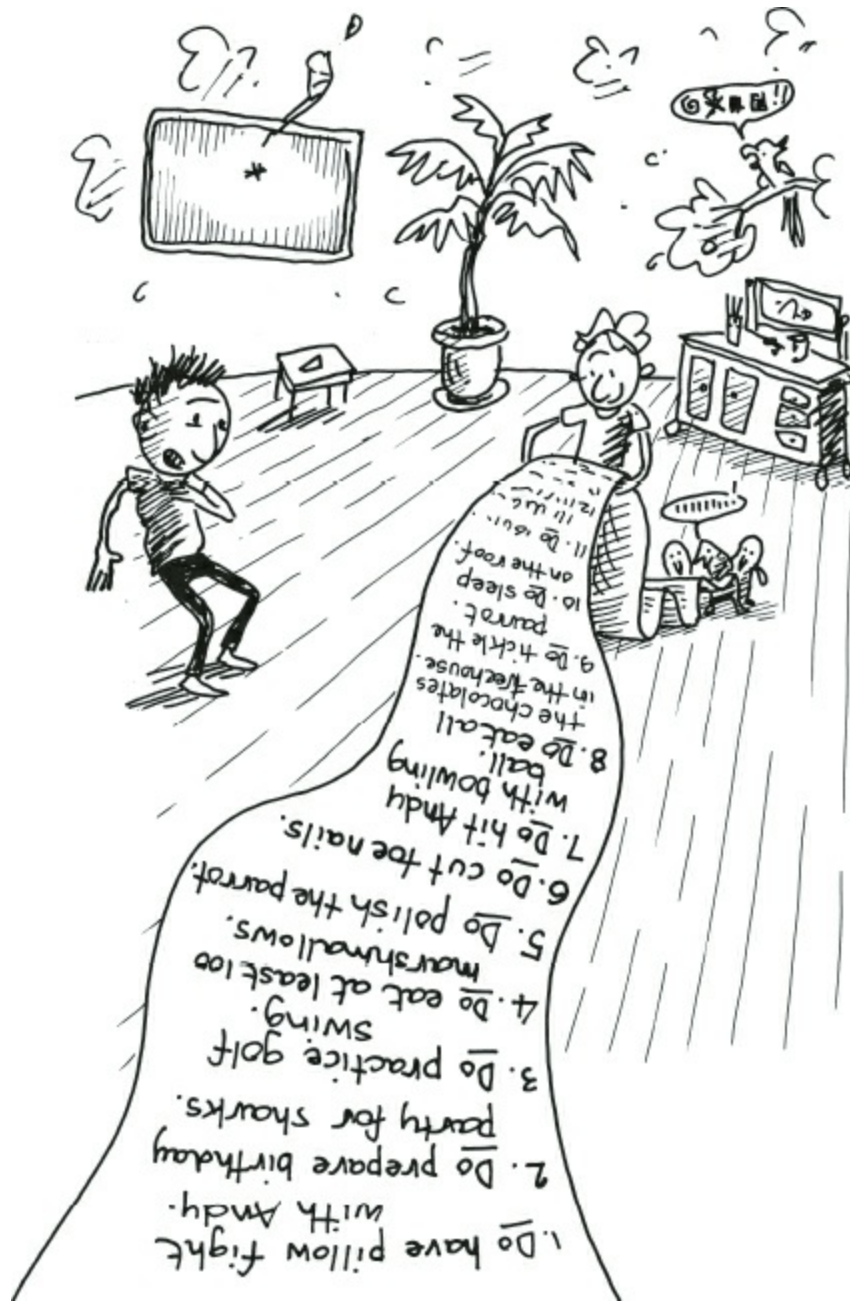 1. Do have pillow fight
with Andy.
2. Do prepare birthday
party for sharks.
3. Do practice golf
swing.
4. Do eat at least 100
marshmallows.
5. Do polish the parrot.
6. Do cut toe nails.
7. Do hit Andy
with bowling
ball.
8. Do eat all
the chocolates
in the treehouse.
9. Do tickle the
parrot.
10. Do sleep
on the roof.
11. Do